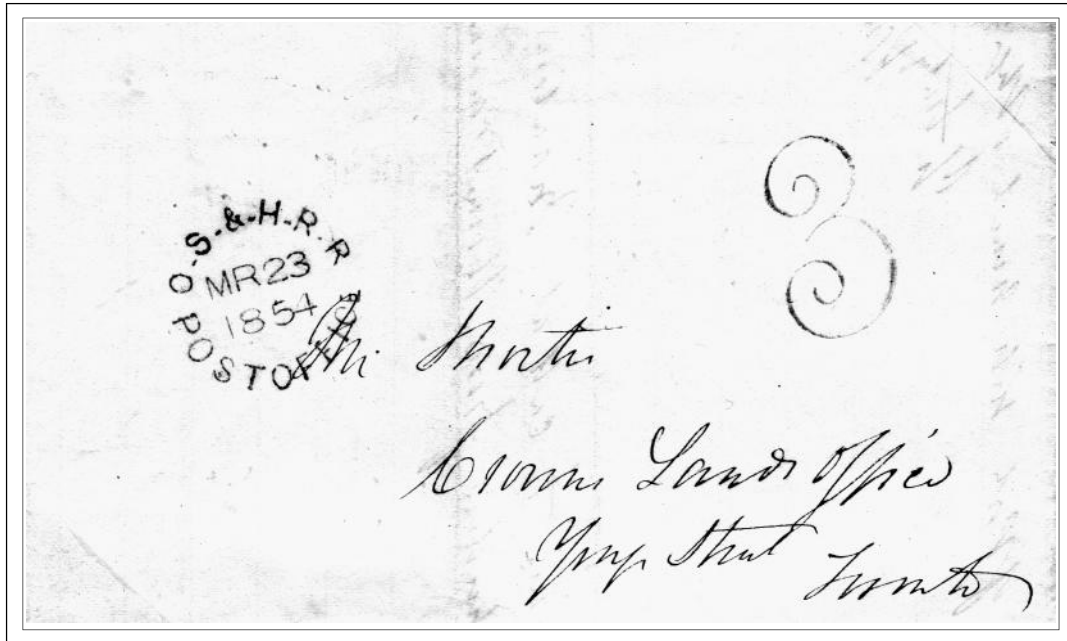 O.S.&.H.R.R
MR23
1854
POST OFFICE
3
Mr
Crown Lands Office
Yonge Street Toronto